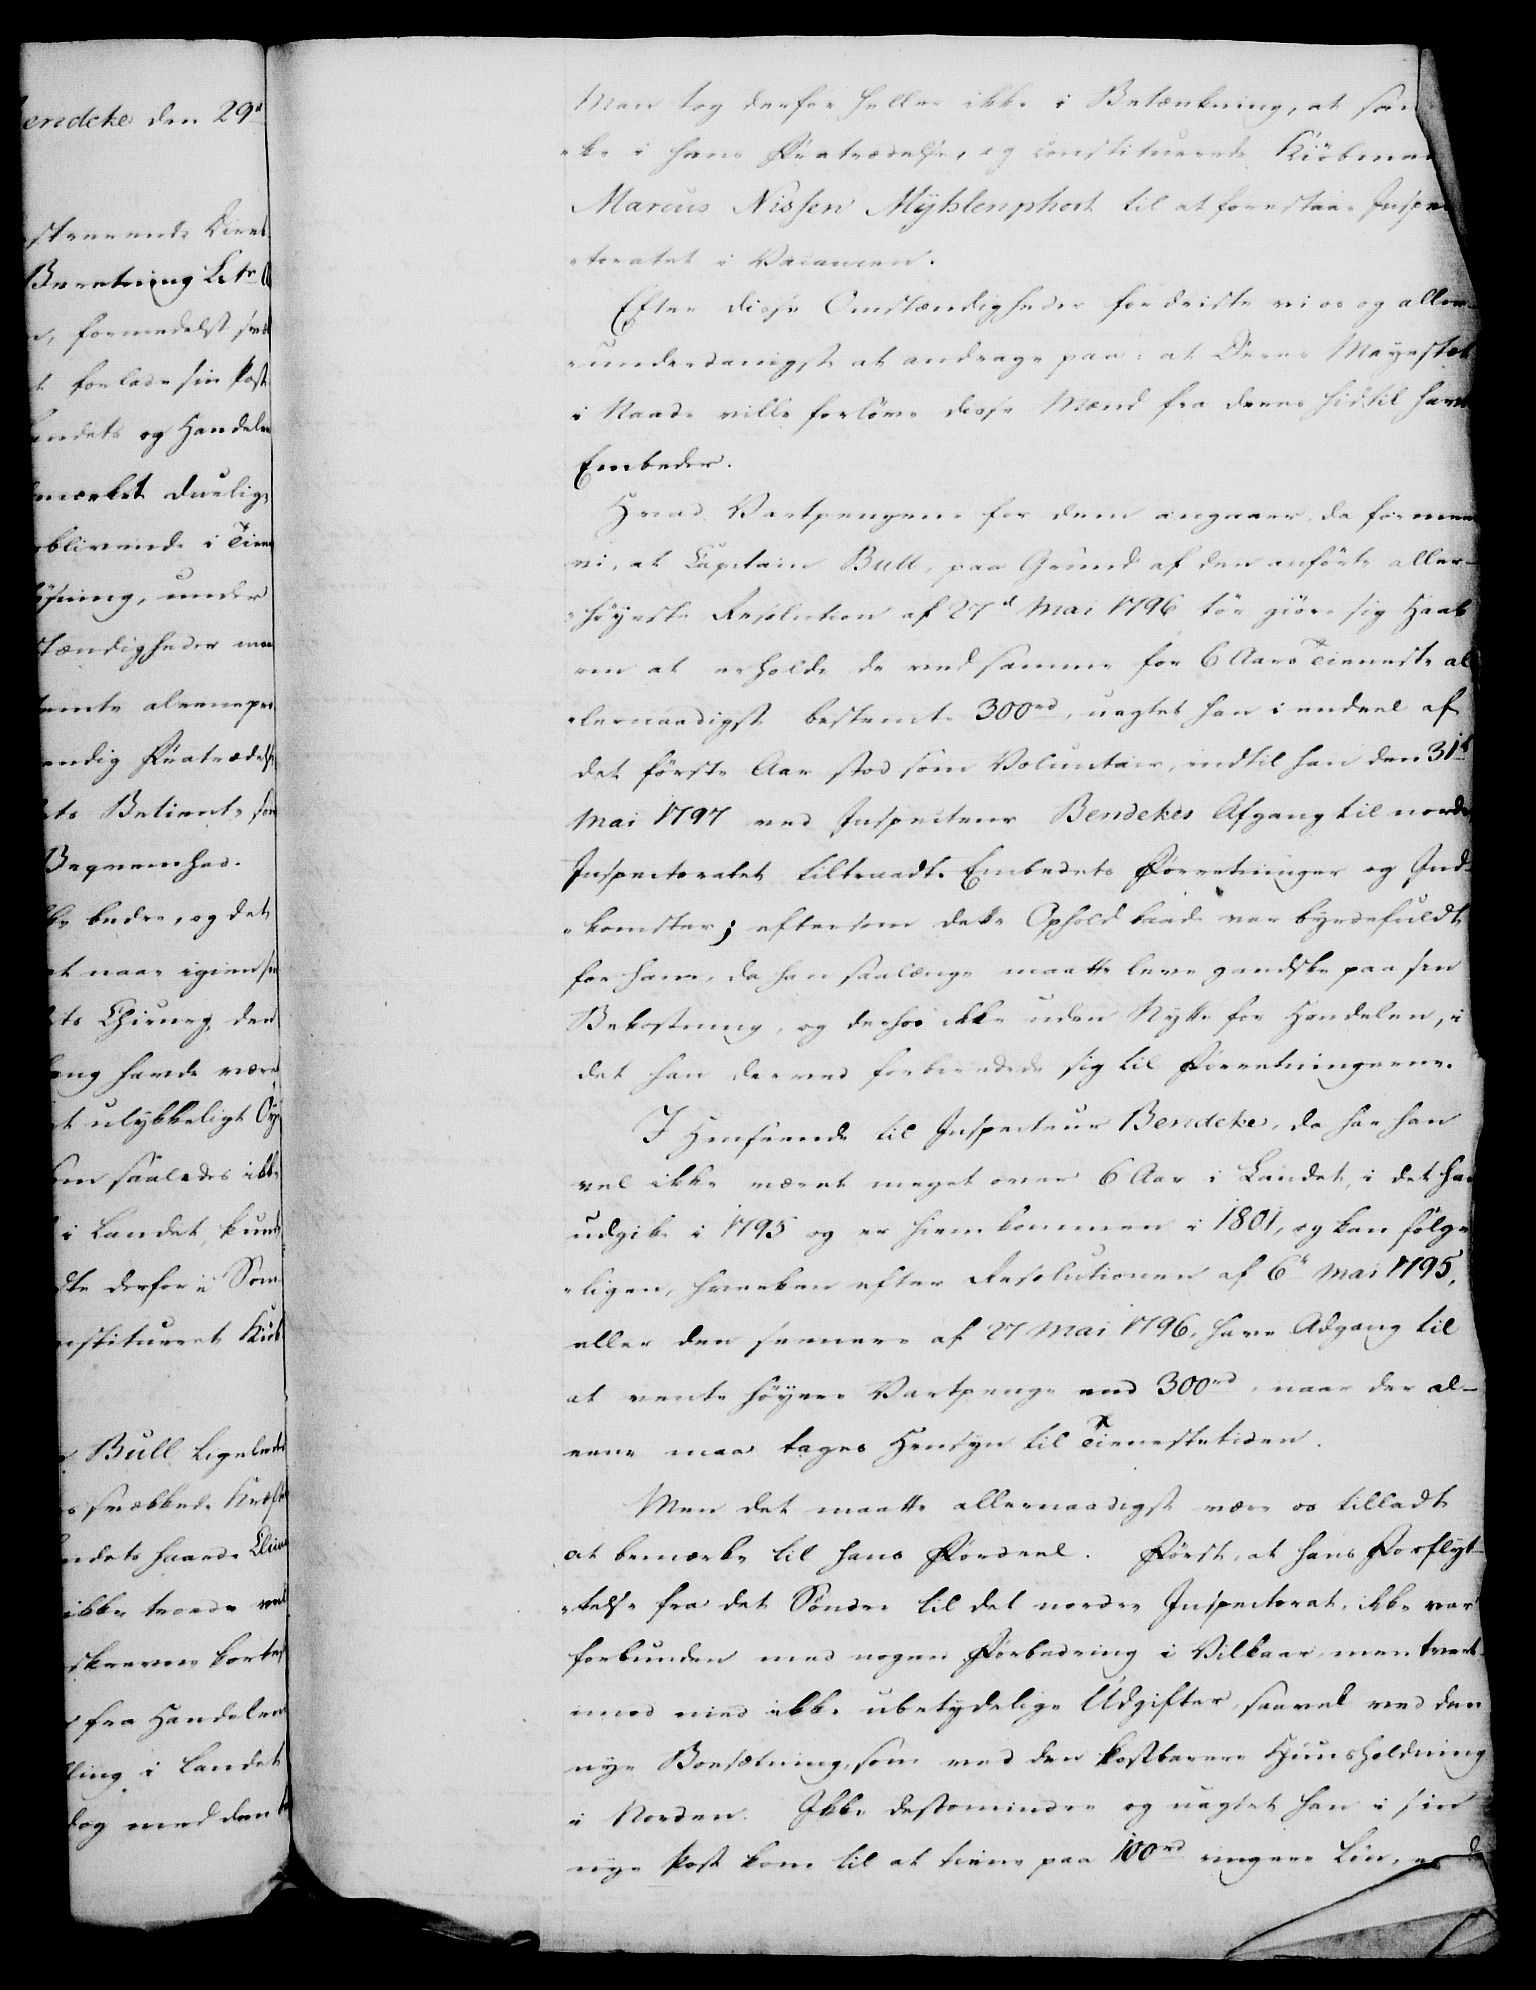 endcke den 29d
Beretning Litr
formedelst
forlade sin Post
andets og Handelen
mærket Duelig
blivende i Tien
øsning, under
stændigheder
emte aleene
endig Fratrædelse
ets Betiente
Beqvemhed.
bedre, og det
at naar igien
ets Chirurg, den
ang havde være
et ulykkeligt
saaledes ikke
i Landet, kunde
derfor i Som
nstitueret Kiøb
Bull, ligeledes
svækkede Kræfter
ndets haarde Clima
ikke troede
skrevne korte
fra Handelen
ling i Landet
dog med den
Man tog derfor heller ikke i Betænkning, at sam
-ke i hans Fratrædelse, og constituerede Kiöbmand
Marcus Nissen Mÿhlenphort til at forestaae Inspec
-toratet i Vacancen.
Efter disse Omstændigheder fordriste vi os og aller-
-underdanigst at andrage paa: at Deres Mayestet
i Naade ville forlöve disse Mænd fra deres hidtil havte
Embeder.
Hvad Vartpengene for dem angaaer, da formene
vi, at Capitain Bull, paa Grund af den anförte aller-
-höyeste Resolution af 27d Mai 1796 tör giöre sig Haab
om at erholde de ved samme for 6 Aars Tieneste al
-lernaadigst bestemte 300rd, uagtet han i endeel af
det förste Aar stod som Voluntair, indtil han den 31d
Mai 1797 ved Inspecteur Bendekes Afgang til nordre
Inspectoratet tiltraadte Embedets Forretninger og Ind-
-komster; eftersom dette Ophold baade var byrdefuldt
for ham, da han saalænge maatte leve gandske paa sin
Bekostning, og derhos ikke uden Nytte for Handelen, i
det han derved forberedede sig til Forretningerne.
I Henseende til Inspecteur Bendcke, da har han
vel ikke været meget over 6 Aar i Landet, i det han
udgik i 1795 og er hiemkommen i 1801, og kan fölge
-ligen, hverken efter Resolutionen af 6te Mai 1795,
eller den senere af 27 Mai 1796, have Adgang til
at vente höyere Vartpenge end 300rd, naar der al-
eene maa tages Hensyn til Tienestetiden.
Men det maatte allernaadigst være os tilladt
at bemærke til hans Fordeel. Först, at hans Forflyt-
-telse fra det Söndre til det nordre Inspectorat, ikke var
forbunden med nogen Forbedring i Vilkaar, men tvert-
imod med ikke ubetydelige Udgifter, saavel ved den
nye Bosætning, som ved den kostbarere Huusholdning
i Norden. Ikke destomindre og uagtet han i sin
nye Post kom til at tiene paa 100rd ringere Lön, er